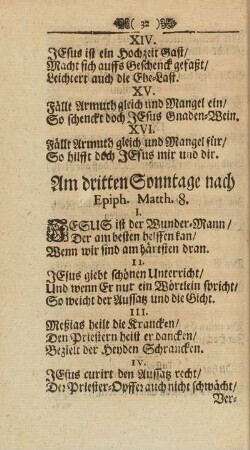 ( 32 )
XIV.
JEsus ist ein Hochzeit Gast/
Macht sich auffs Geschenck gefaßt/
Leichtert auch die Ehe-Last.
XV.
Fällt Armuth gleich und Mangel ein/
So schenckt doch JEsus Gnaden-Wein.
XVI.
Fällt Armuth gleich und Mangel für/
So hilfft doch JEsus mir und dir.
Am dritten Sonntage nach
Epiph. Matth. 8.
I.
JESUS ist der Wunder-Mann/
Der am besten helffen kan/
Wenn wir sind am härtsten dran.
II.
JEsus giebt schönen Unterricht/
Und wenn Er nur ein Wörtlein spricht/
So weicht der Aussatz und die Gicht.
III.
Meßias heilt die Krancken/
Den Priestern heist er dancken/
Bezielt der Heyden Schrancken.
IV.
JEsus curirt den Aussatz recht/
Der Priester-Opffer auch nicht schwächt/
Ver-